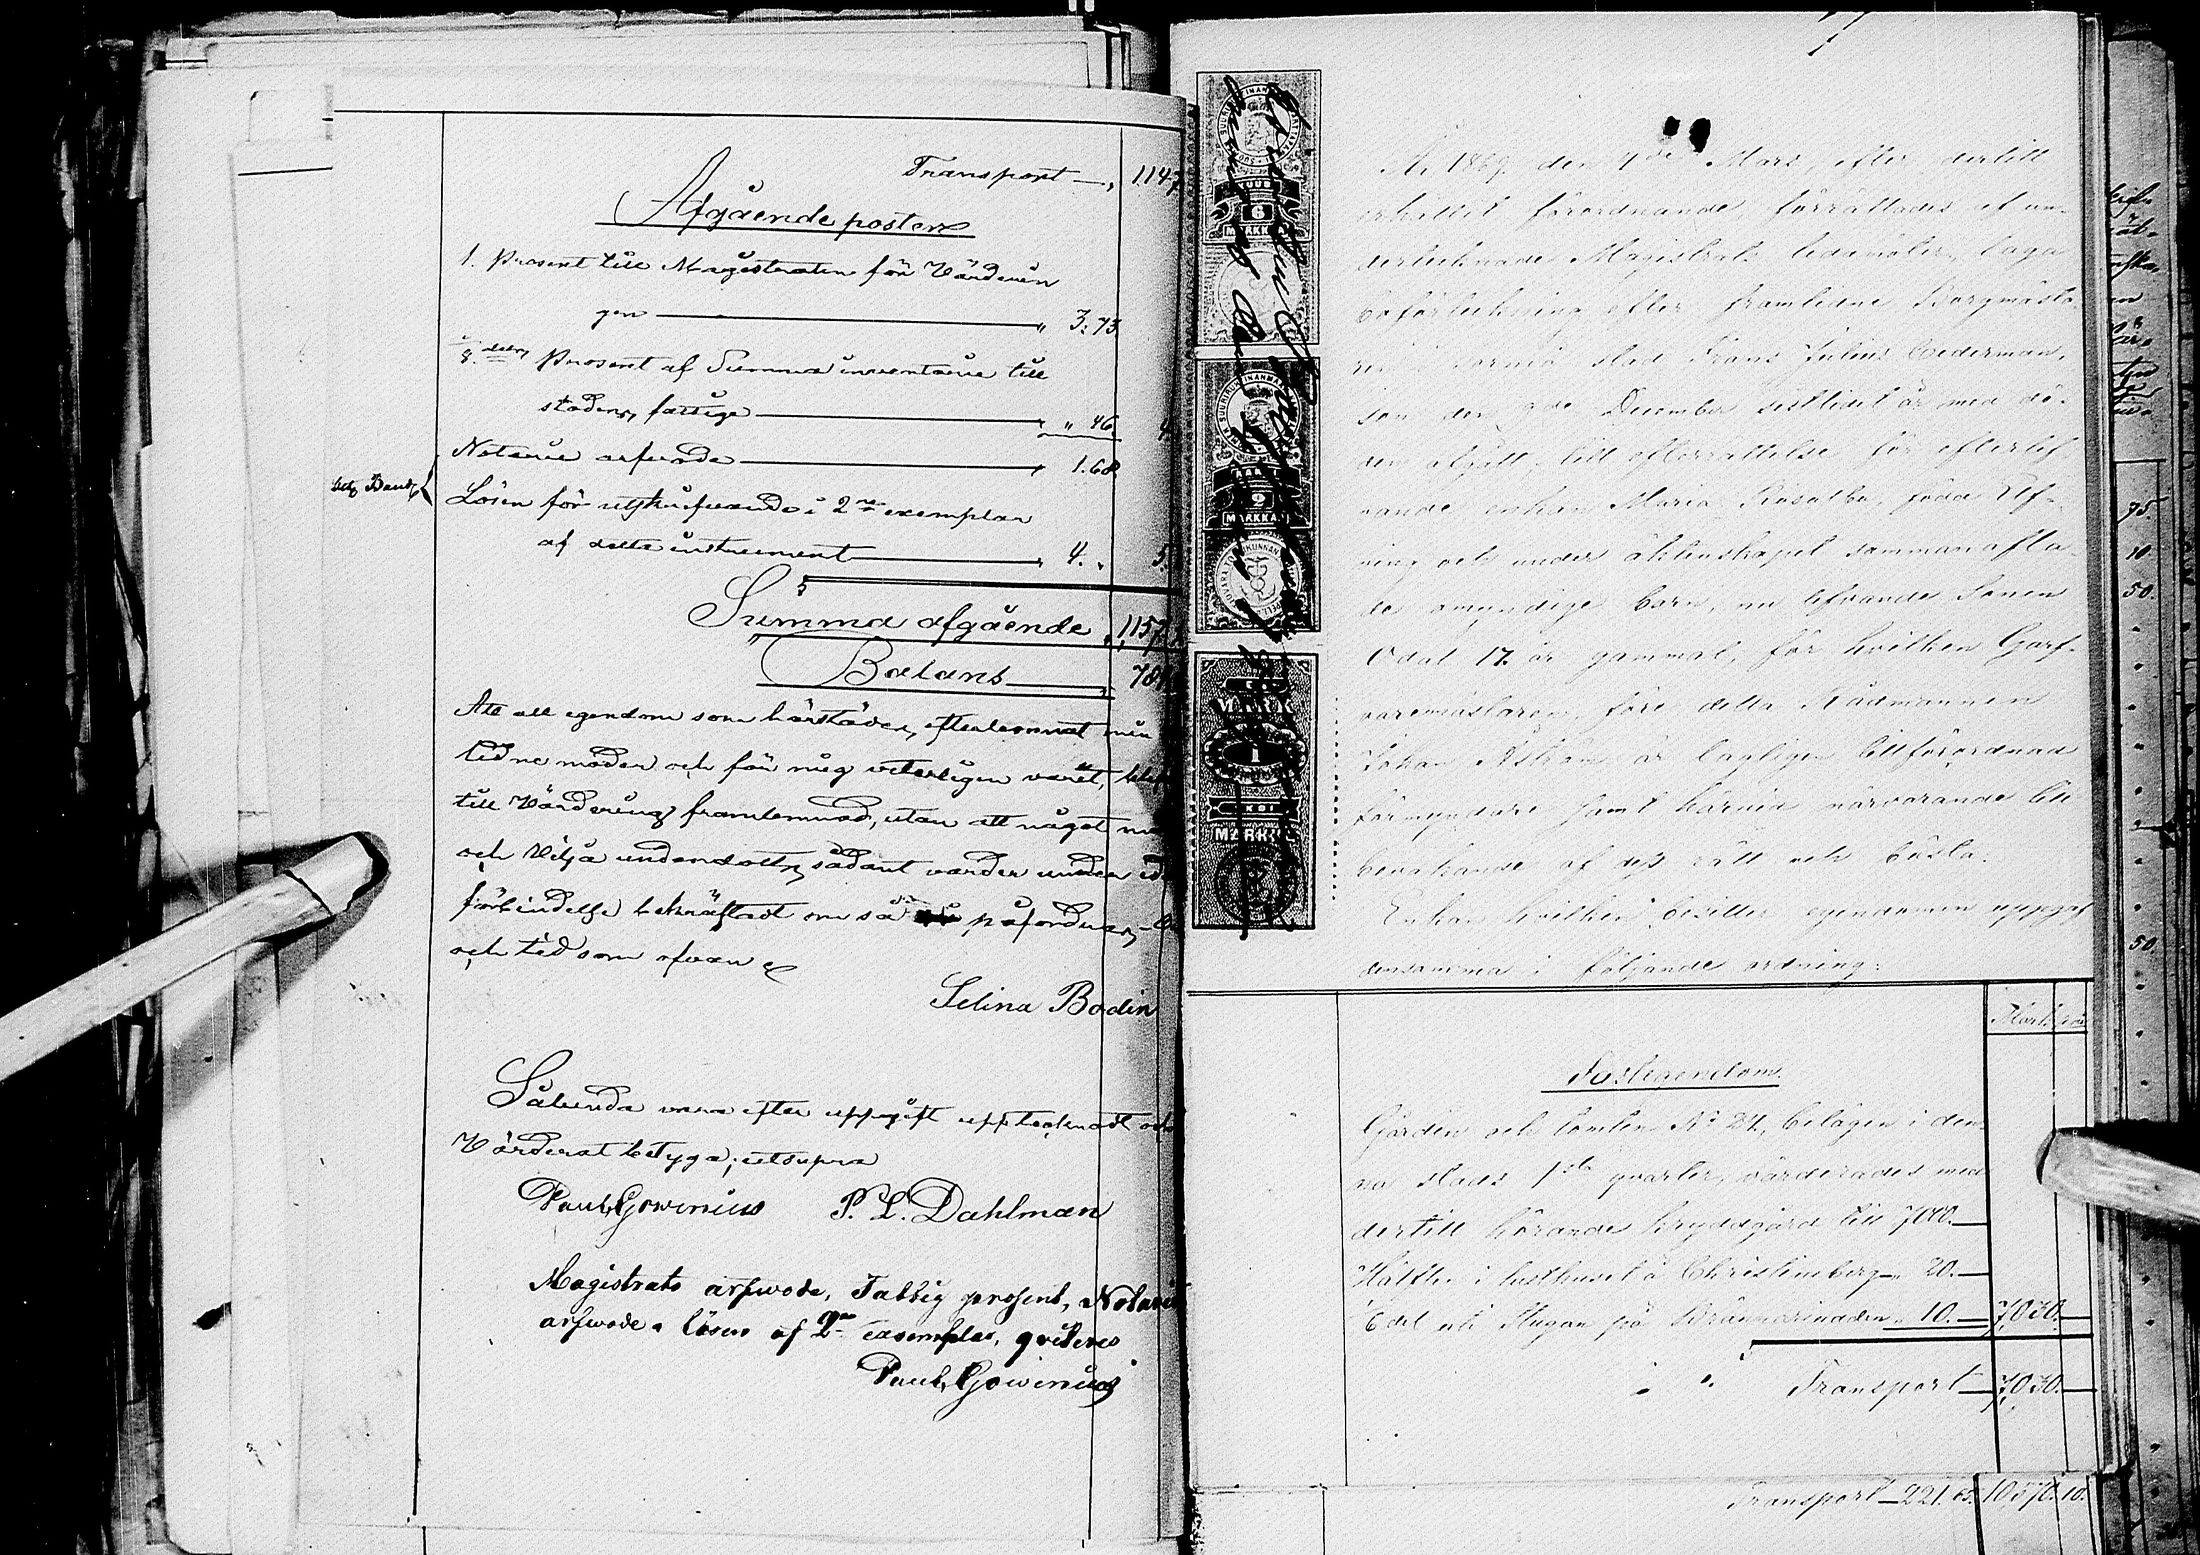 Transport — „ 1147
Afgående poster
1. Prosent till Magistraten för Värderin
gen — „ 3:73
8. delz Prosent af Summa inventarie till
stadens fattige — „ „ 46.
Notarie arfvode — „ 1.68
Lösen för utskrifvande i 2ne exemplar
af detta instrument — „ 4. „ 5.
Summa afgående „ 1157
Balans — „ 784
Att all egendom som härstädes efterlemnat min
lidne moder och för mig veterligen varit, blif
till Värdering framlemnad, utan att något med
och Vilja undendoltz sådant varder under ed
förbindelse bekräftadt om så påfordras,
och tid som ofvan
Selina Bodin
Sålunda vara efter uppgift upptecknadt och
Värderat betyga; utsupra
Paul Gowenius P. L. Dahlman
Magistrats arfwode, Fattig prosent, Notarie
arfwode o lösen af 2ne exemplar, qviteres
Paul Gowenius
6
MARKKAA
9
MARKKAA
MARK
1
YKSI
MARKKA
År 1869 den 4de Mars, efter dertill
erhållit förordnande, förrättades af un-
dertecknade Magistrats ledamöter, laga
boförteckning efter framlidne Borgmästa-
ren i Torneå stad Frans Julius Cederman,
som den 9de December sistlidet år med dö-
den afgått till efterrättelse för efterlef-
vande enkan Maria Rosalba, född Elf-
ving och under äktenskapet sammanafla-
de omyndige barn, nu lefvande Sonen
Odal 17. år gammal, för hvilken Garf-
varemästaren, före detta Rådmannen
Johan Åström är lagligen tillförordnad
förmyndare samt härvid närvarande till
bevakande af dess rätt och bästa.
Enkan hvilken besitter egendomen uppgaf
densamma i följande ordning:
Mark
Fastegendom.
Gården och tomten No 24, belägen i den-
na stads 1sta qvarter, värderades med
dertill hörande kryddgård till 7000.—
Hälften i lusthuset å Christineberg „ 20.—
delt uti Stugan på Brännarinaden „ 10.— 7,030.—
Transport — 7,030.—
Transport — 221.65. 10570.10.
75.
10
50.
50.